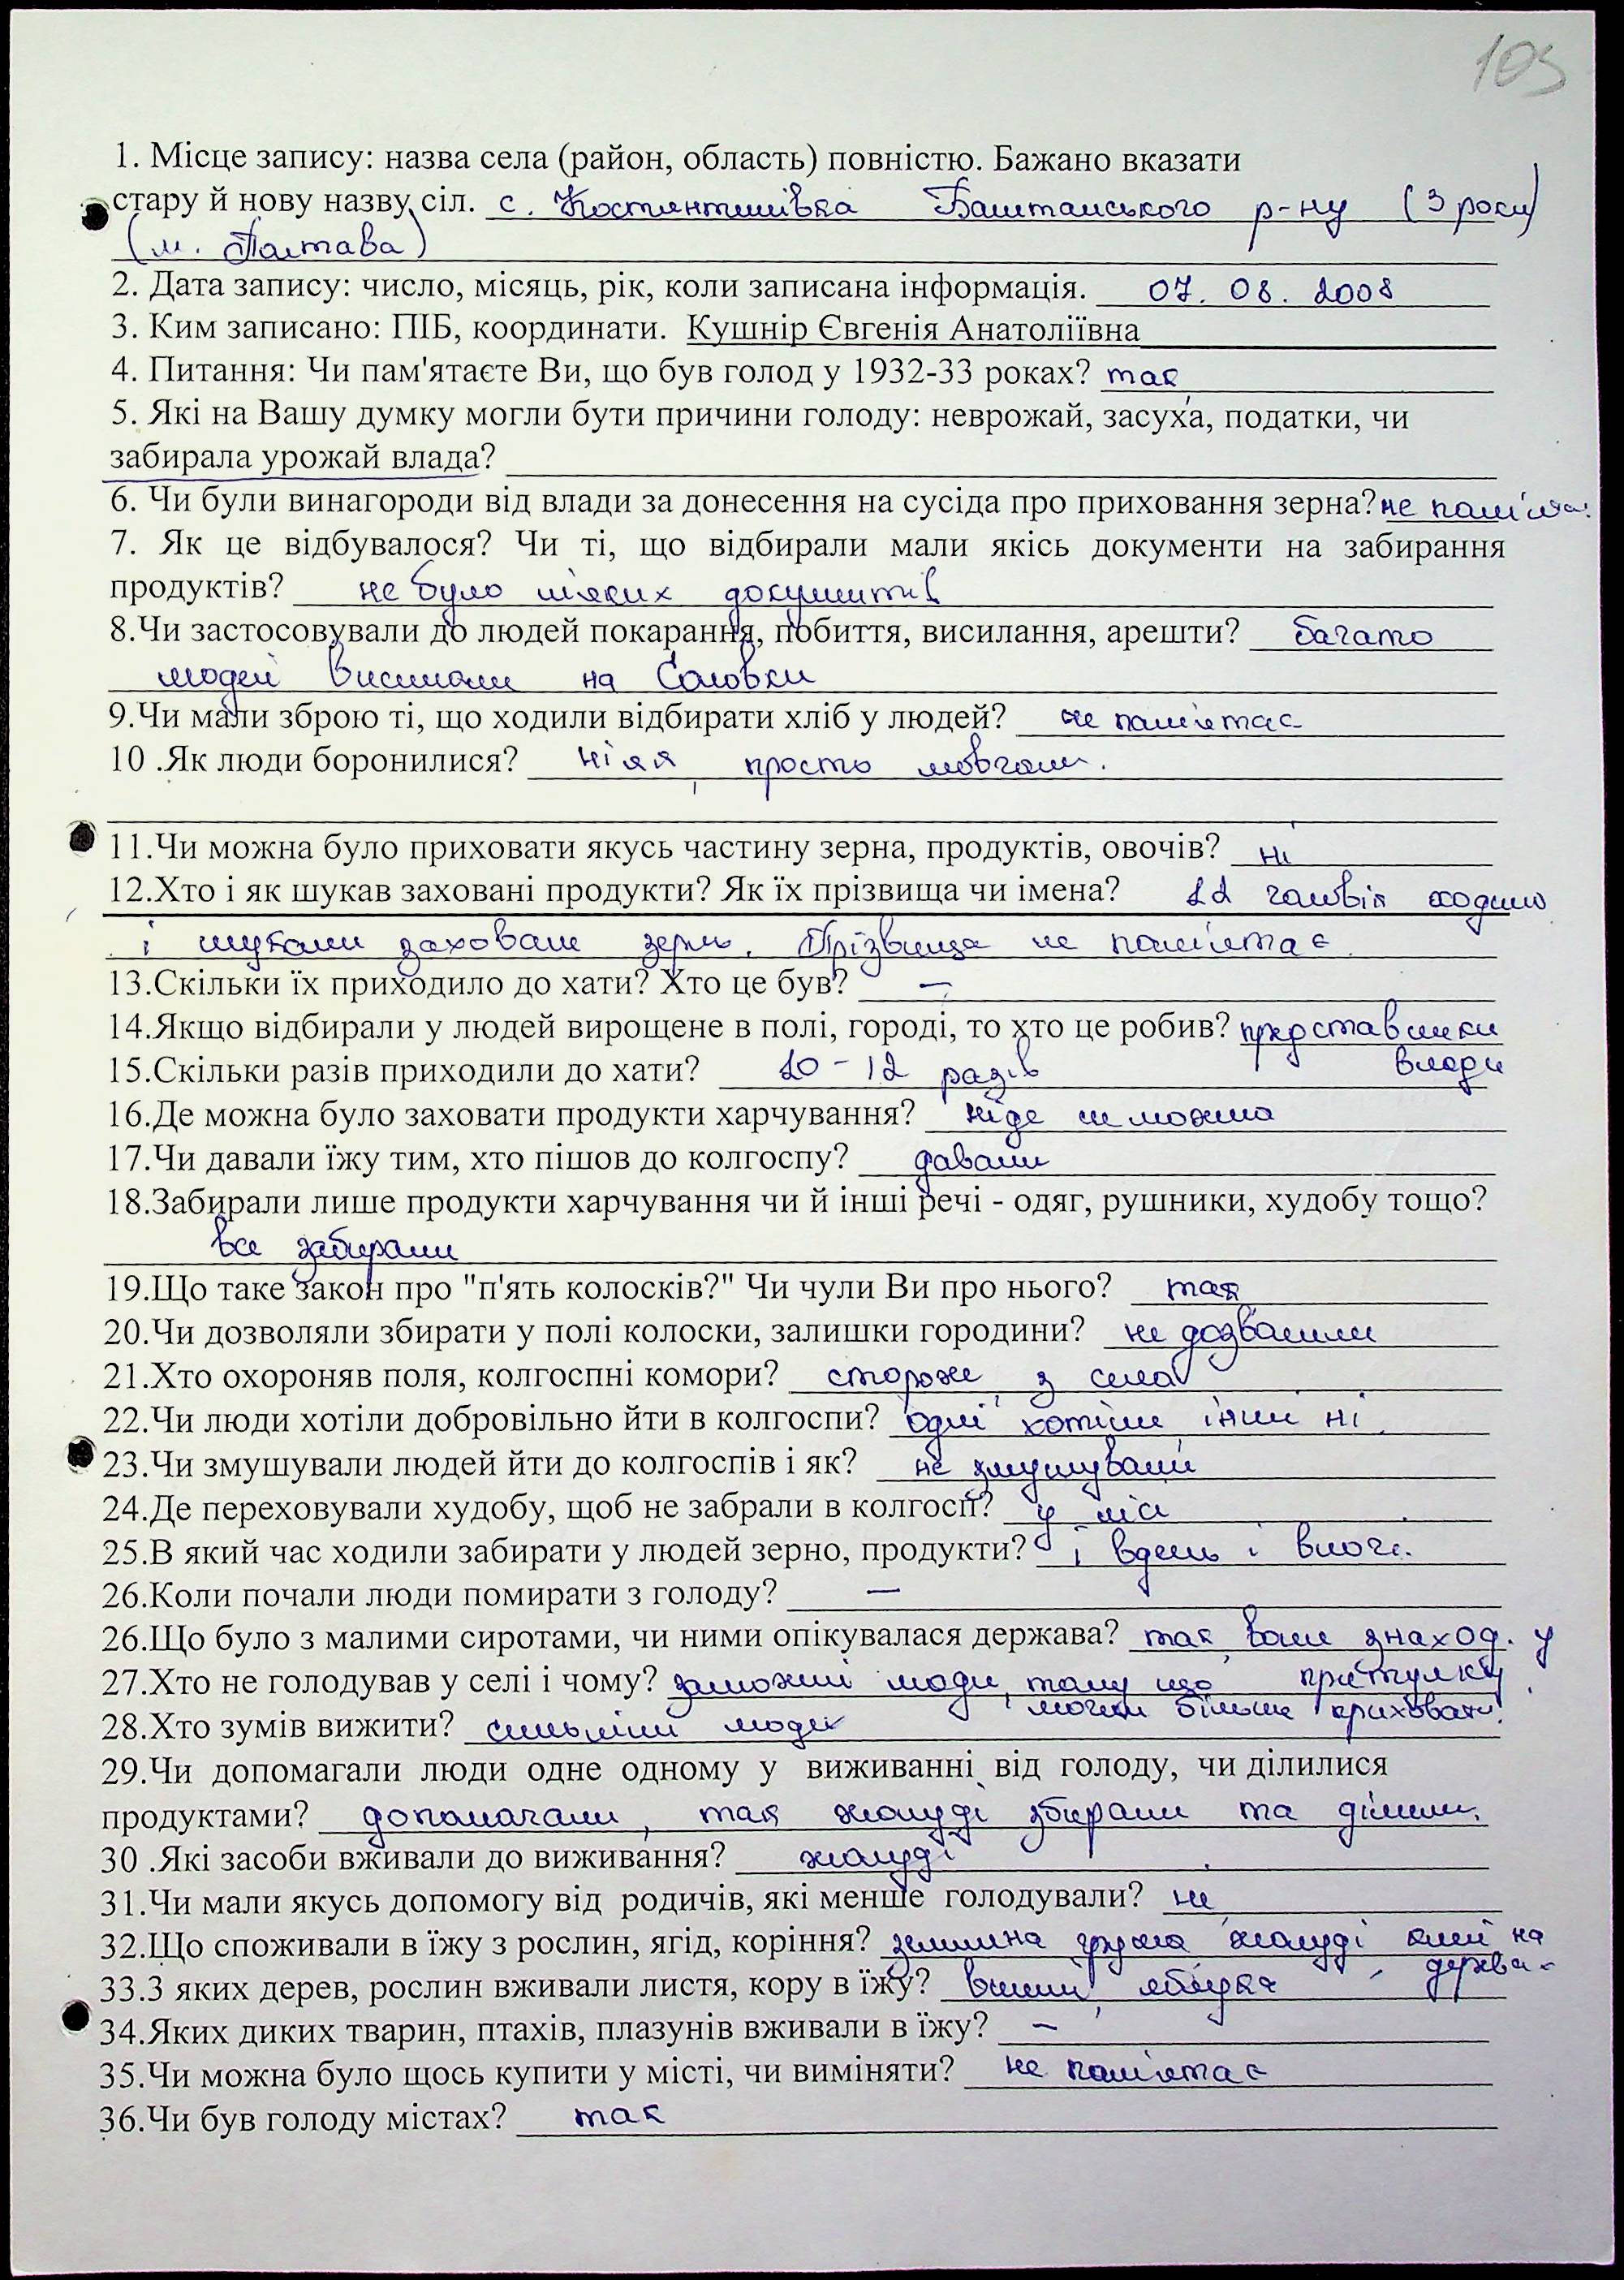 103
1. Місце запису: назва села (район, область) повністю. Бажано вказати
стару й нову назву сіл. с. Костянтинівка Баштанського р-ну (3 роки)
(м. Полтава)
2. Дата запису: число, місяць, рік, коли записана інформація. 07. 08. 2008
3. Ким записано: ПІБ, координати. Кушнір Євгенія Анатоліївна
4. Питання: Чи пам'ятаєте Ви, що був голод у 1932-33 роках? так
5. Які на Вашу думку могли бути причини голоду: неврожай, засуха, податки, чи
забирала урожай влада?
6. Чи були винагороди від влади за донесення на сусіда про приховання зерна? не пам'ята.
7. Як це відбувалося? Чи ті, що відбирали мали якісь документи на забирання
продуктів? не було ніяких документів
8.Чи застосовували до людей покарання, побиття, висилання, арешти? багато
людей висилали на Соловки
9.Чи мали зброю ті, що ходили відбирати хліб у людей? не пам'ятає
10 .Як люди боронилися? ніяк, просто мовчали.
11.Чи можна було приховати якусь частину зерна, продуктів, овочів? ні
12.Хто і як шукав заховані продукти? Як їх прізвища чи імена? 12 чоловік ходило
і шукали заховане зерно. Прізвища не пам'ятає.
13.Скільки їх приходило до хати? Хто це був? –
14.Якщо відбирали у людей вирощене в полі, городі, то хто це робив? представники
влади
15.Скільки разів приходили до хати? 10 – 12 разів
16.Де можна було заховати продукти харчування? ніде не можна
17.Чи давали їжу тим, хто пішов до колгоспу? давали
18.Забирали лише продукти харчування чи й інші речі - одяг, рушники, худобу тощо?
все забирали
19.Що таке закон про "п'ять колосків?" Чи чули Ви про нього? так
20.Чи дозволяли збирати у полі колоски, залишки городини? не дозволяли
21.Хто охороняв поля, колгоспні комори? сторожі з села
22.Чи люди хотіли добровільно йти в колгоспи? одні хотіли, інші ні.
23.Чи змушували людей йти до колгоспів і як? не змушували
24.Де переховували худобу, щоб не забрали в колгосп? у лісі
25.В який час ходили забирати у людей зерно, продукти? і вдень і вночі.
26.Коли почали люди помирати з голоду? –
26.Що було з малими сиротами, чи ними опікувалася держава? так, вони знаход. у
притулку.
27.Хто не голодував у селі і чому? заможні люди, тому що
могли більше приховати.
28.Хто зумів вижити? сильніші люди
29.Чи допомагали люди одне одному у виживанні від голоду, чи ділилися
продуктами? допомагали, так жолуді збирали та ділили.
30 .Які засоби вживали до виживання? жолуді
31.Чи мали якусь допомогу від родичів, які менше голодували? ні
32.Що споживали в їжу з рослин, ягід, коріння? земляна груша, жолуді, клей на
дерева-
33.З яких дерев, рослин вживали листя, кору в їжу? вишні, яблука
34.Яких диких тварин, птахів, плазунів вживали в їжу? –
35.Чи можна було щось купити у місті, чи виміняти? не пам'ятає
36.Чи був голоду містах? так